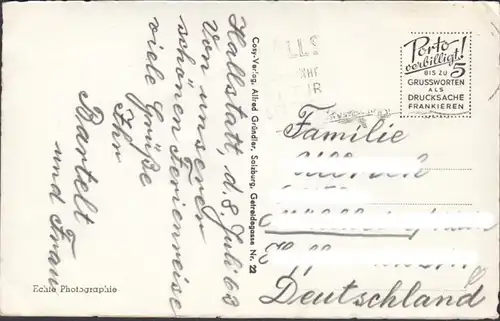 Hallstatt, d. 8. Juli 63
Von unserer
schönen Ferienreise
viele Grüße
Ihr
Bartelt
und Frau
Echte Photographie
Cosy-Verlag, Alfred Gründler, Salzburg, Getreidegasse Nr. 22
Porto
verbilligt!
BIS ZU 5
GRUSSWORTEN
ALS
DRUCKSACHE
FRANKIEREN
Familie
Deutschland